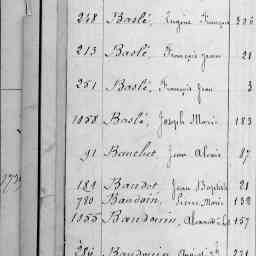 248 Baslé, Eugène François 306
213 Baslé, François Jean 21
251 Baslé, François Jean 3
1058 Baslé, Joseph Marie 183
91 Bauchet, Jean Alexis 87
184 Baudet, Jean Baptiste 21
780 Baudoin, Pierre Marie 138
1055 Baudouin, 157
286 Baudouin 271